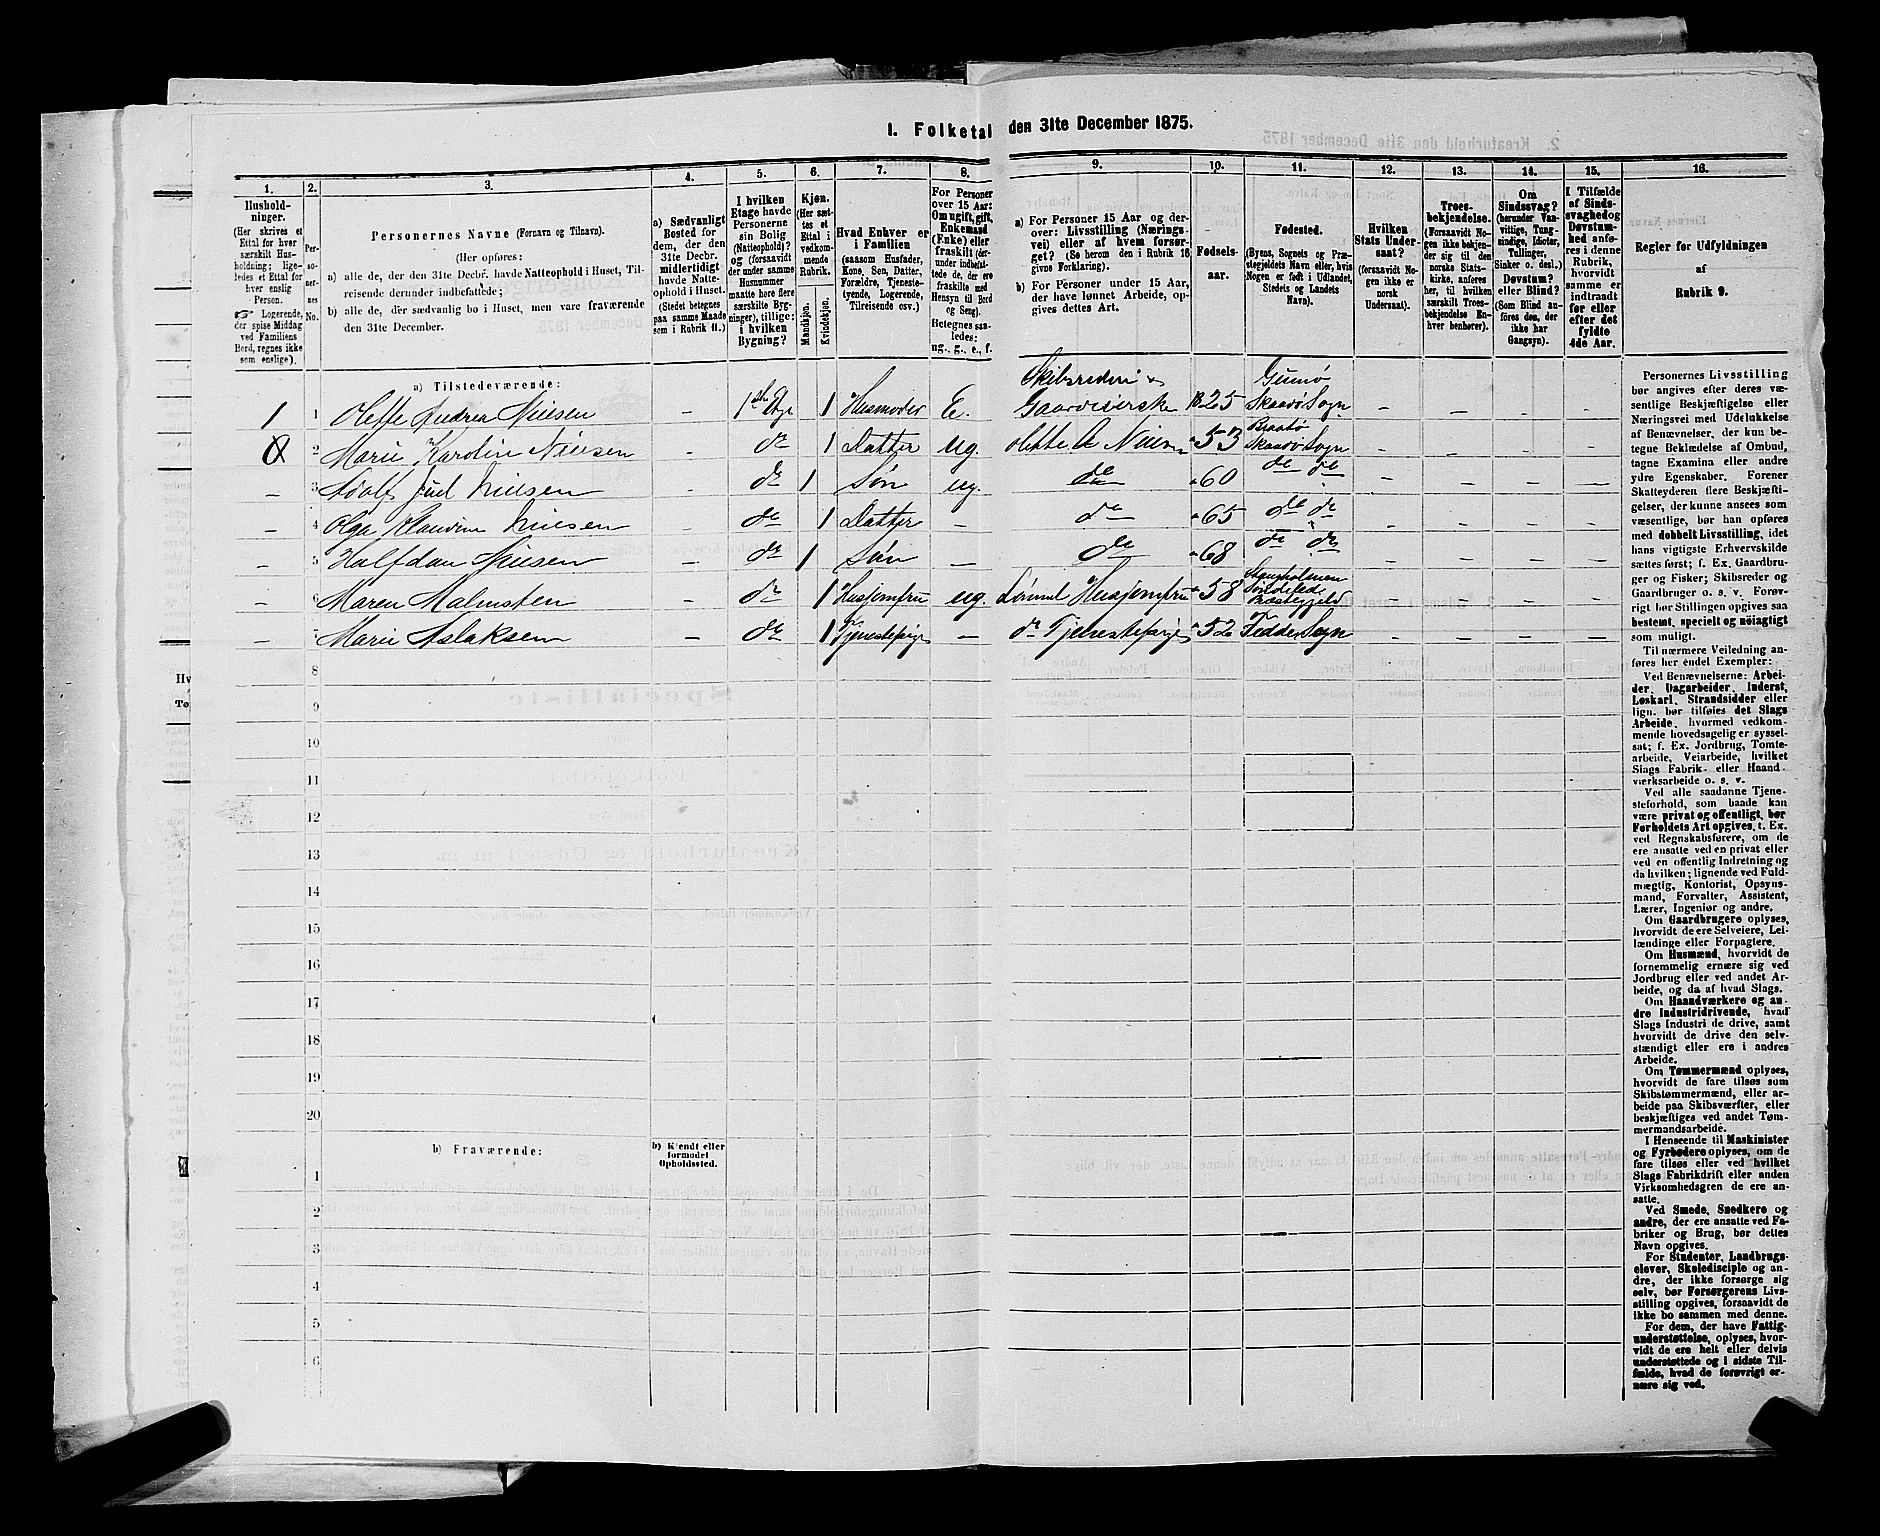 I. Folketal den 31te December 1875.
1. 2. 3. 4. 5. 6. 7. 8. 9. 10. 11. 12. 13. 14. 15. 16.
Husholdninger.
(Her skrives et
Ettal for hver
særskilt Husholdning;
ligeledes et Ettal for
hver enslig
Person.
☞ Logerende,
der spise Middag
ved Familiens
Bord, regnes ikke
som enslige).
Personernes No.
Personernes Navne (Fornavn og Tilnavn).
(Her opføres:
a) alle de, der den 31te Decbr. havde Natteophold i Huset, Tilreisende
derunder indbefattede;
b) alle de, der sædvanlig bo i Huset, men vare fraværende
den 31te December.
a) Sædvanligt
Bosted for
dem, der den
31te Decbr.
midlertidigt
havde Natteophold
i Huset.
(Stedet betegnes
paa samme Maade
som i Rubrik 11.)
I hvilken
Etage havde
Personerne
sin Bolig
(Natteophold)?
og (forsaavidt
der under samme
Husnummer
maatte høre flere
særskilte Bygninger),
tillige:
i hvilken
Bygning?
Kjøn.
(Her sættes
et
Ettal i
vedkommende
Rubrik.
Mandkjøn.
Kvindekjøn.
Hvad Enhver er
i Familien
(saasom Husfader,
Kone, Søn, Datter,
Forældre, Tjenestetyende,
Logerende,
Tilreisende osv.)
For Personer
over 15 Aar:
Om ugift, gift,
Enkemand
(Enke) eller
fraskilt (derunder
indbefattede
de, der ere
fraskilte med
Hensyn til Bord
og Seng).
Betegnes saaledes:
ug., g., e., f.
a) For Personer 15 Aar og derover:
Livsstilling (Næringsvei)
eller af hvem forsørget?
(Se herom den i Rubrik 16
givne Forklaring).
b) For Personer under 15 Aar,
der have lønnet Arbeide, opgives
dettes Art.
Fødselsaar.
Fødested.
(Byens, Sognets og Præstegjeldets
Navn eller, hvis
Nogen er født i Udlandet,
Stedets og Landets
Navn).
Hvilken
Stats Undersaat?
(forsaavidt Nogen
ikke er
norsk
Undersaat).
Troesbekjendelse.
(Forsaavidt Nogen
ikke bekjender
sig til den
norske Statskirke,
anføres
her, til hvilken
særskilt Troesbekjendelse
Enhver
henhører).
Om
Sindssvag?
(herunder Vanvittige,
Tungsindige,
Idioter,
Tullinger,
Sinker o. desl.)
Døvstum?
eller Blind?
(Som Blind anføres
den, der
ikke har
Gangsyn).
I Tilfælde
af Sindssvaghed
og
Døvstumhed
anføres
i denne
Rubrik,
hvorvidt
samme er
indtraadt
før eller
efter det
fyldte
4de Aar.
Regler for Udfyldningen
af
Rubrik 9.
a) Tilstedeværende:
1 1 Olette Andrea Nielsen – 1ste Etge 1 Husmoder E. Skibsrederi & Gaardeierske 1825 Gumø Skaadø Sogn – – – –
2 Marie Karoline Nielsen – do 1 Datter ug. Olette A Nielsen " 53 Skaadø Sogn – – – –
– 3 Adolf Juel Nielsen – do 1 Søn ug. do " 60 do do – – – –
– 4 Olga Klaudine Nielsen – do 1 Datter – do " 65 do do – – – –
– 5 Halfdan Nielsen – do 1 Søn – do " 68 do do – – – –
– 6 Maren Malmsten – do 1 Husjomfru ug. Lønnet Husjomfru " 58 Præstegjeld – – – –
– 7 Marie Aslaksen – do 1 Tjenestepige – do Tjenestepige " 52 Sogn – – – –
8
9
10
11
12
13
14
15
16
17
18
19
20
b) Fraværende:
b) Kjendt eller
formodet
Opholdssted.
1
2
3
4
5
6
Personernes Livsstilling
bør angives efter deres væsentlige
Beskjæftigelse eller
Næringsvei med Udelukkelse
af Benævnelser, der kun betegne
Beklædelse af Ombud,
tagne Examina eller andre
ydre Egenskaber. Forener
Skatteyderen flere Beskjæftigelser,
der kunne ansees som
væsentlige, bør han opføres
med dobbelt Livsstilling, idet
hans vigtigste Erhvervskilde
sættes først; f. Ex. Gaardbruger
og Fisker; Skibsreder og
Gaardbruger o. s. v. Forøvrigt
bør Stillingen opgives saa
bestemt, specielt og nøiagtigt
som muligt.
Til nærmere Veiledning anføres
her endel Exempler:
Ved Benævnelserne: Arbeider,
Dagarbeider, Inderst,
Løskarl, Strandsidder eller
lign. bør tilføies det Slags
Arbeide, hvormed vedkommende
hovedsagelig er sysselsat;
f. Ex. Jordbrug, Tomtearbeide,
Veiarbeide, hvilket
Slags Fabrik- eller Haandværksarbeide
o. s. v.
Ved alle saadanne Tjenesteforhold,
som baade kan
være privat og offentligt, bør
Forholdets Art opgives, t. Ex.
ved Regnskabsførere, om de
ere ansatte ved en privat eller
ved en offentlig Indretning og
da hvilken; lignende ved Fuldmægtig,
Kontorist, Opsynsmand,
Forvalter, Assistent,
Lærer, Ingeniør og andre.
Om Gaardbrugere oplyses,
hvorvidt de ere Selveiere, Leilændinge
eller Forpagtere.
Om Husmænd, hvorvidt de
fornemmelig ernære sig ved
Jordbrug eller ved andet Arbeide,
og da af hvad Slags.
Om Haandværkere og andre
Industridrivende, hvad
Slags Industri de drive, samt
hvorvidt de drive den selvstændigt
eller ere i andres
Arbeide.
Om Tømmermænd oplyses,
hvorvidt de fare tilsøs som
Skibstømmermænd, eller arbeide
paa Skibsværfter, eller
beskjæftiges ved andet Tømmermandsarbeide.
I Henseende til Maskinister
og Fyrbødere oplyses, om de
fare tilsøs eller ved hvilket
Slags Fabrikdrift eller anden
Virksomhedsgren de ere ansatte.
Ved Smede, Snedkere og
andre, der ere ansatte ved Fabriker
og Brug, bør dettes
Navn opgives.
For Studenter, Landbrugselever,
Skoledisciple og andre,
der ikke forsørge sig
selv, bør Forsørgerens Livsstilling
opgives, forsaavidt de
ikke bo sammen med denne.
For dem, der have Fattigunderstøttelse,
oplyses, hvorvidt
de ere helt eller delvis
understøttede og i sidste Tilfælde,
hvad de forøvrigt ernære
sig ved.